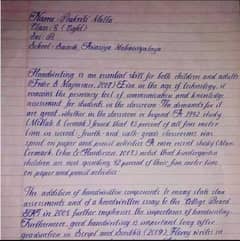 Name: Prakriti Malla
Class: 8 (Eight)
Sec: A
School: Sainik Awasiya Mahavidyalaya
Handwriting is an essential skill for both children and adults
(Feder & Majnemer, 2007) Even in the age of technology, it
remains the primary tool of communication and knowledge
assessment for students in the classroom. The demands for it
are great, whether in the classroom or beyond. A 1992 study
(McHale & Cermak) found that 85 percent of all fine motor
time in second-, fourth- and sixth-grade classrooms was
spent on paper and pencil activities. A more recent study (Marr,
Cermak, Cohn & Henderson, 2003) noted that kindergarten
children are now spending 42 percent of their fine motor time
on paper and pencil activities.
The addition of handwritten components to many state
assessments and of a handwritten essay to the College Board
SAT in 2005 further emphasize the importance of handwriting.
Furthermore, good handwriting is important long after
graduation in